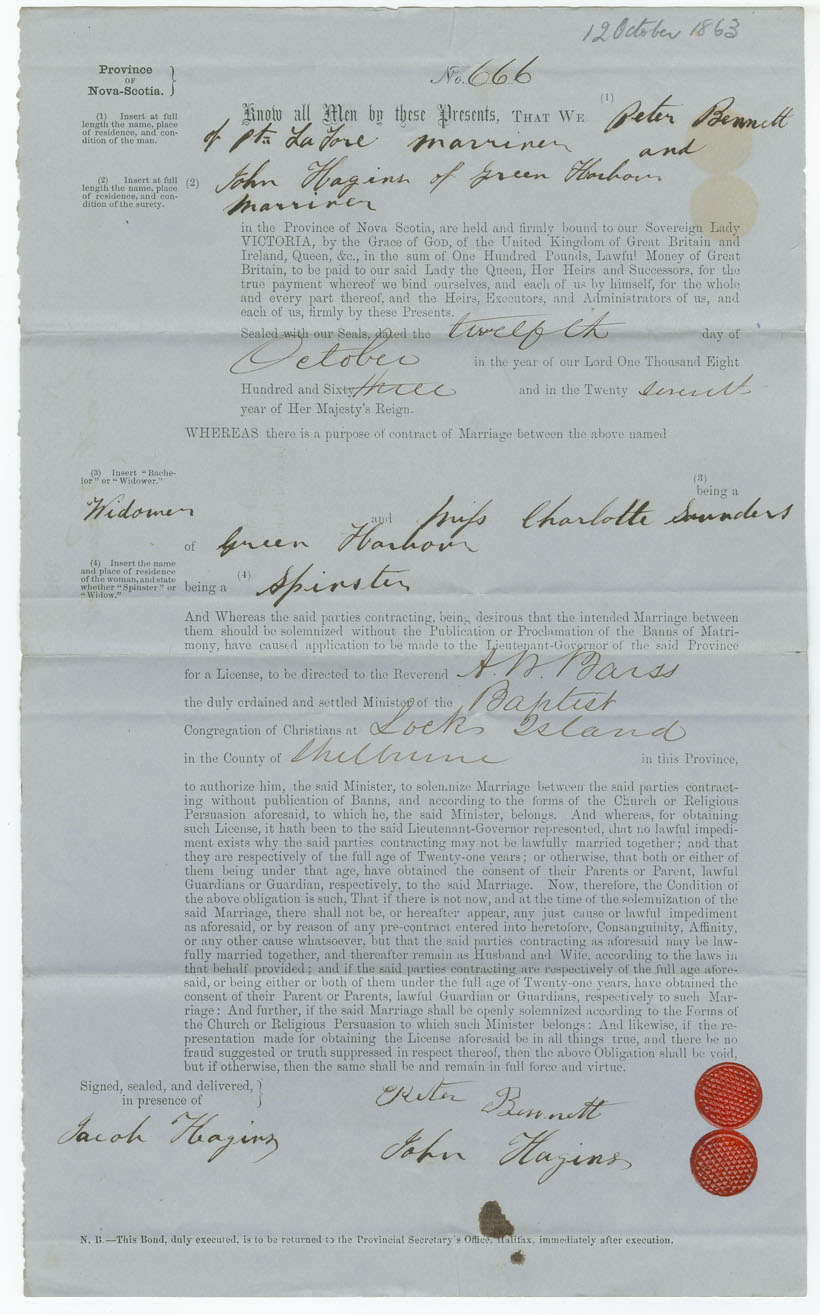 12 October 1863
Province
OF
Nova-Scotia.
No. 666
(1) Insert at full
length the name, place
of residence, and con-
dition of the man.
Know all Men by these Presents, THAT WE (1) Peter Bennett
of pt. La Tore marriner and
(2) Insert at full
length the name, place
of residence, and con-
dition of the surety.
(2) John Hagins of Green Harbour
Marriner
in the Province of Nova Scotia, are held and firmly bound to our Sovereign Lady
VICTORIA, by the Grace of GOD, of the United Kingdom of Great Britain and
Ireland, Queen, &c., in the sum of One Hundred Pounds, Lawful Money of Great
Britain, to be paid to our said Lady the Queen, Her Heirs and Successors, for the
true payment whereof we bind ourselves, and each of us by himself, for the whole
and every part thereof, and the Heirs, Executors, and Administrators of us, and
each of us, firmly by these Presents.
Sealed with our Seals, dated the twelfth day of
October in the year of our Lord One Thousand Eight
Hundred and Sixty three and in the Twenty
year of Her Majesty's Reign.
WHEREAS there is a purpose of contract of Marriage between the above named
(3) Insert "Bache-
lor" or "Widower."
(3)
being a
Widower and Miss Charlotte Saunders
of Green Harbour
(4) Insert the name
and place of residence
of the woman, and state
whether "Spinster" or
"Widow."
being a (4) Spinster
And Whereas the said parties contracting, being desirous that the intended Marriage between
them should be solemnized without the Publication or Proclamation of the Banns of Matri-
mony, have caused application to be made to the Lieutenant-Governor of the said Province
for a License, to be directed to the Reverend A. W. Barss
the duly ordained and settled Minister of the Baptist
Congregation of Christians at Locks Island
in the County of Shelburne in this Province,
to authorize him, the said Minister, to solemnize Marriage between the said parties contract-
ing without publication of Banns, and according to the forms of the Church or Religious
Persuasion aforesaid, to which he, the said Minister, belongs. And whereas, for obtaining
such License, it hath been to the said Lieutenant-Governor represented, that no lawful impedi-
ment exists why the said parties contracting may not be lawfully married together; and that
they are respectively of the full age of Twenty-one years; or otherwise, that both or either of
them being under that age, have obtained the consent of their Parents or Parent, lawful
Guardians or Guardian, respectively, to the said Marriage. Now, therefore, the Condition of
the above obligation is such, That if there is not now, and at the time of the solemnization of the
said Marriage, there shall not be, or hereafter appear, any just cause or lawful impediment
as aforesaid, or by reason of any pre-contract entered into heretofore, Consanguinity, Affinity,
or any other cause whatsoever, but that the said parties contracting as aforesaid may be law-
fully married together, and thereafter remain as Husband and Wife, according to the laws in
that behalf provided; and if the said parties contracting are respectively of the full age afore-
said, or being either or both of them under the full age of Twenty-one years, have obtained the
consent of their Parent or Parents, lawful Guardian or Guardians, respectively to such Mar-
riage: And further, if the said Marriage shall be openly solemnized according to the Forms of
the Church or Religious Persuasion to which such Minister belongs: And likewise, if the re-
presentation made for obtaining the License aforesaid be in all things true, and there be no
fraud suggested or truth suppressed in respect thereof, then the above Obligation shall be void,
but if otherwise, then the same shall be and remain in full force and virtue.
Signed, sealed, and delivered,
in presence of
Peter Bennett
Jacob Hagins
John Hagins
N. B.—This Bond, duly executed, is to be returned to the Provincial Secretary's Office, Halifax, immediately after execution.